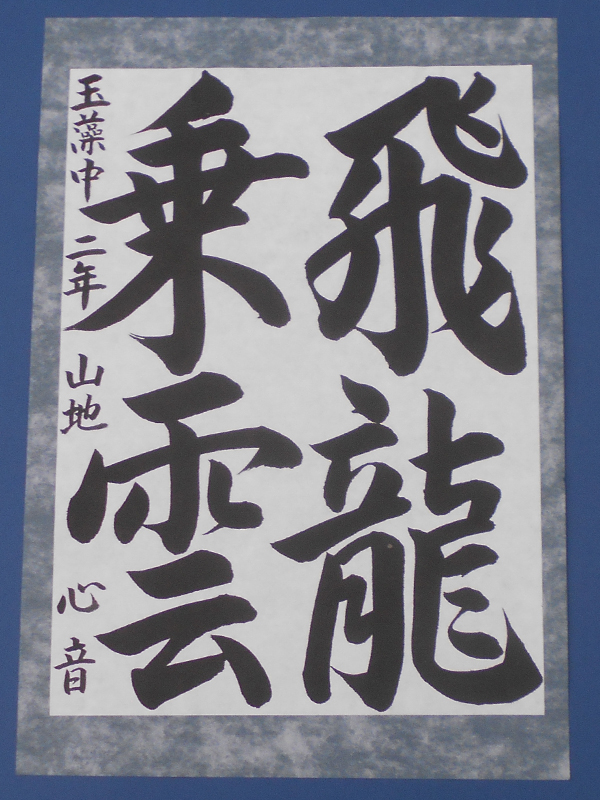 飛龍
乗雲
玉藻中 二年 山地 心音